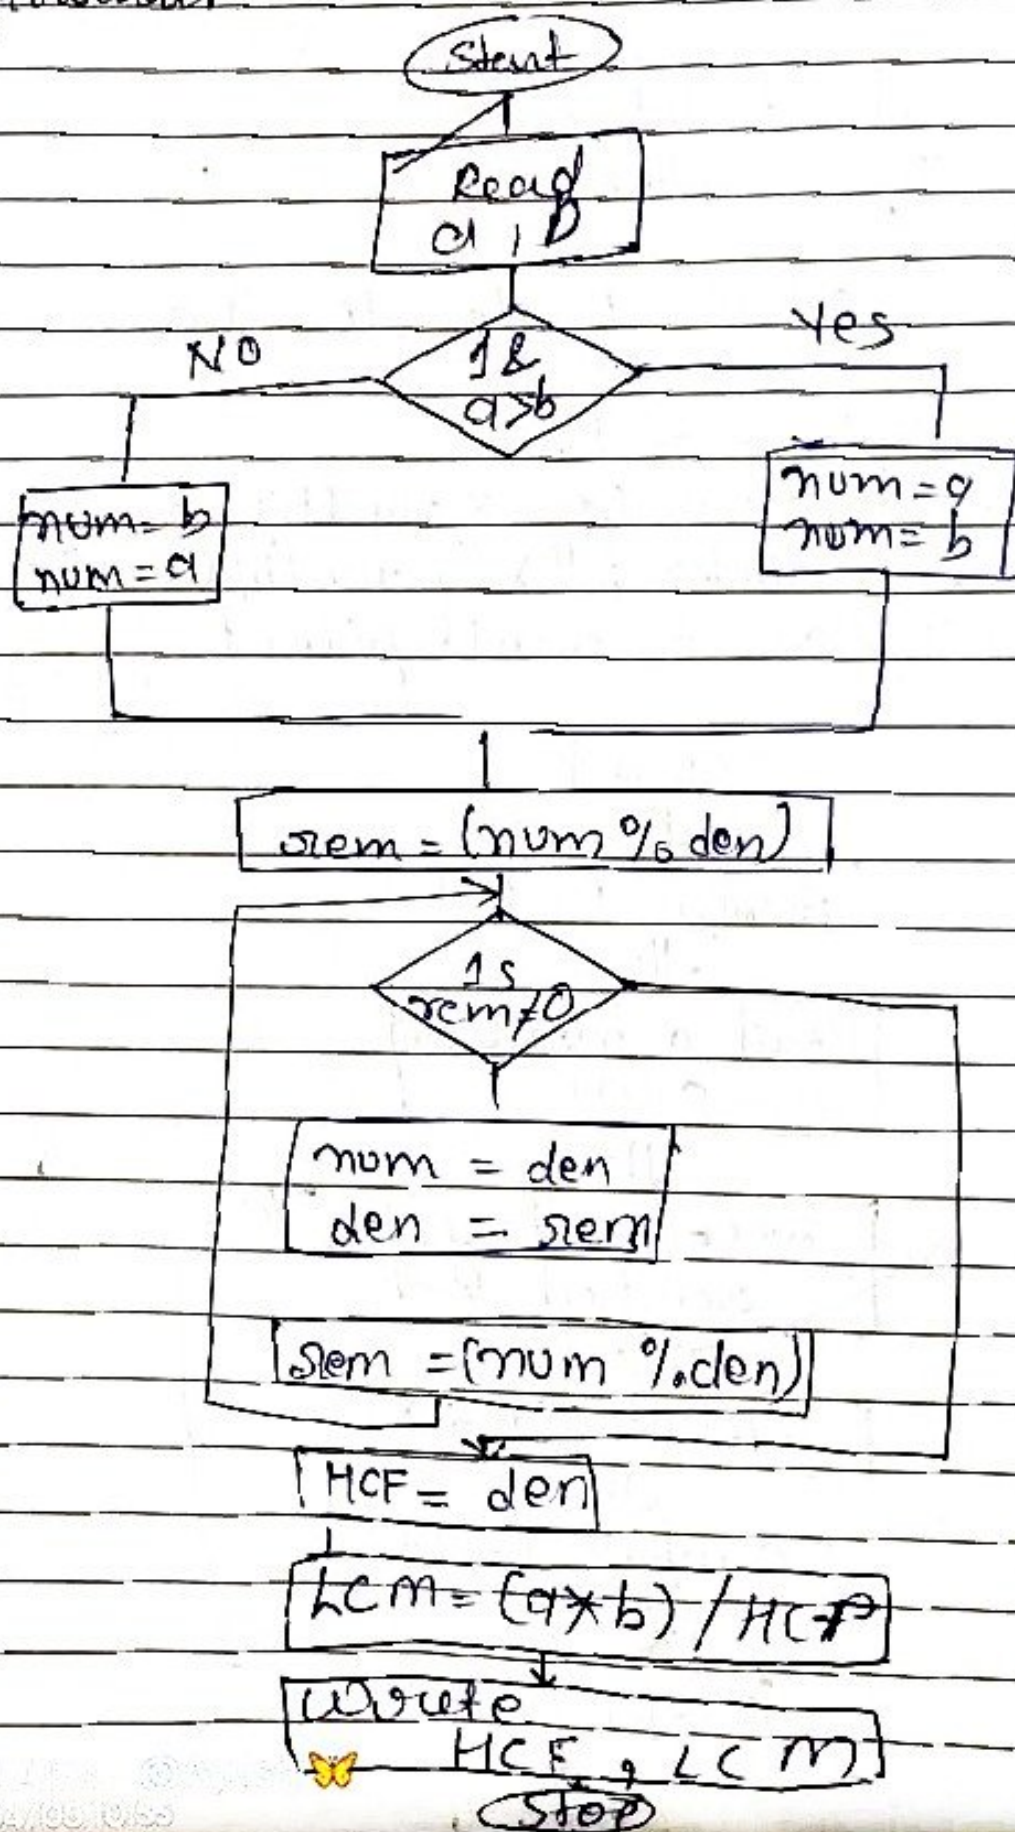 Start
Read
a, b
NO
Is
a>b
Yes
num = b
num = a
num = a
num = b
rem = (num % den)
Is
rem≠0
num = den
den = rem
rem = (num % den)
HCF = den
LCM = (a * b) / HCF
Write
HCF, LCM
Stop